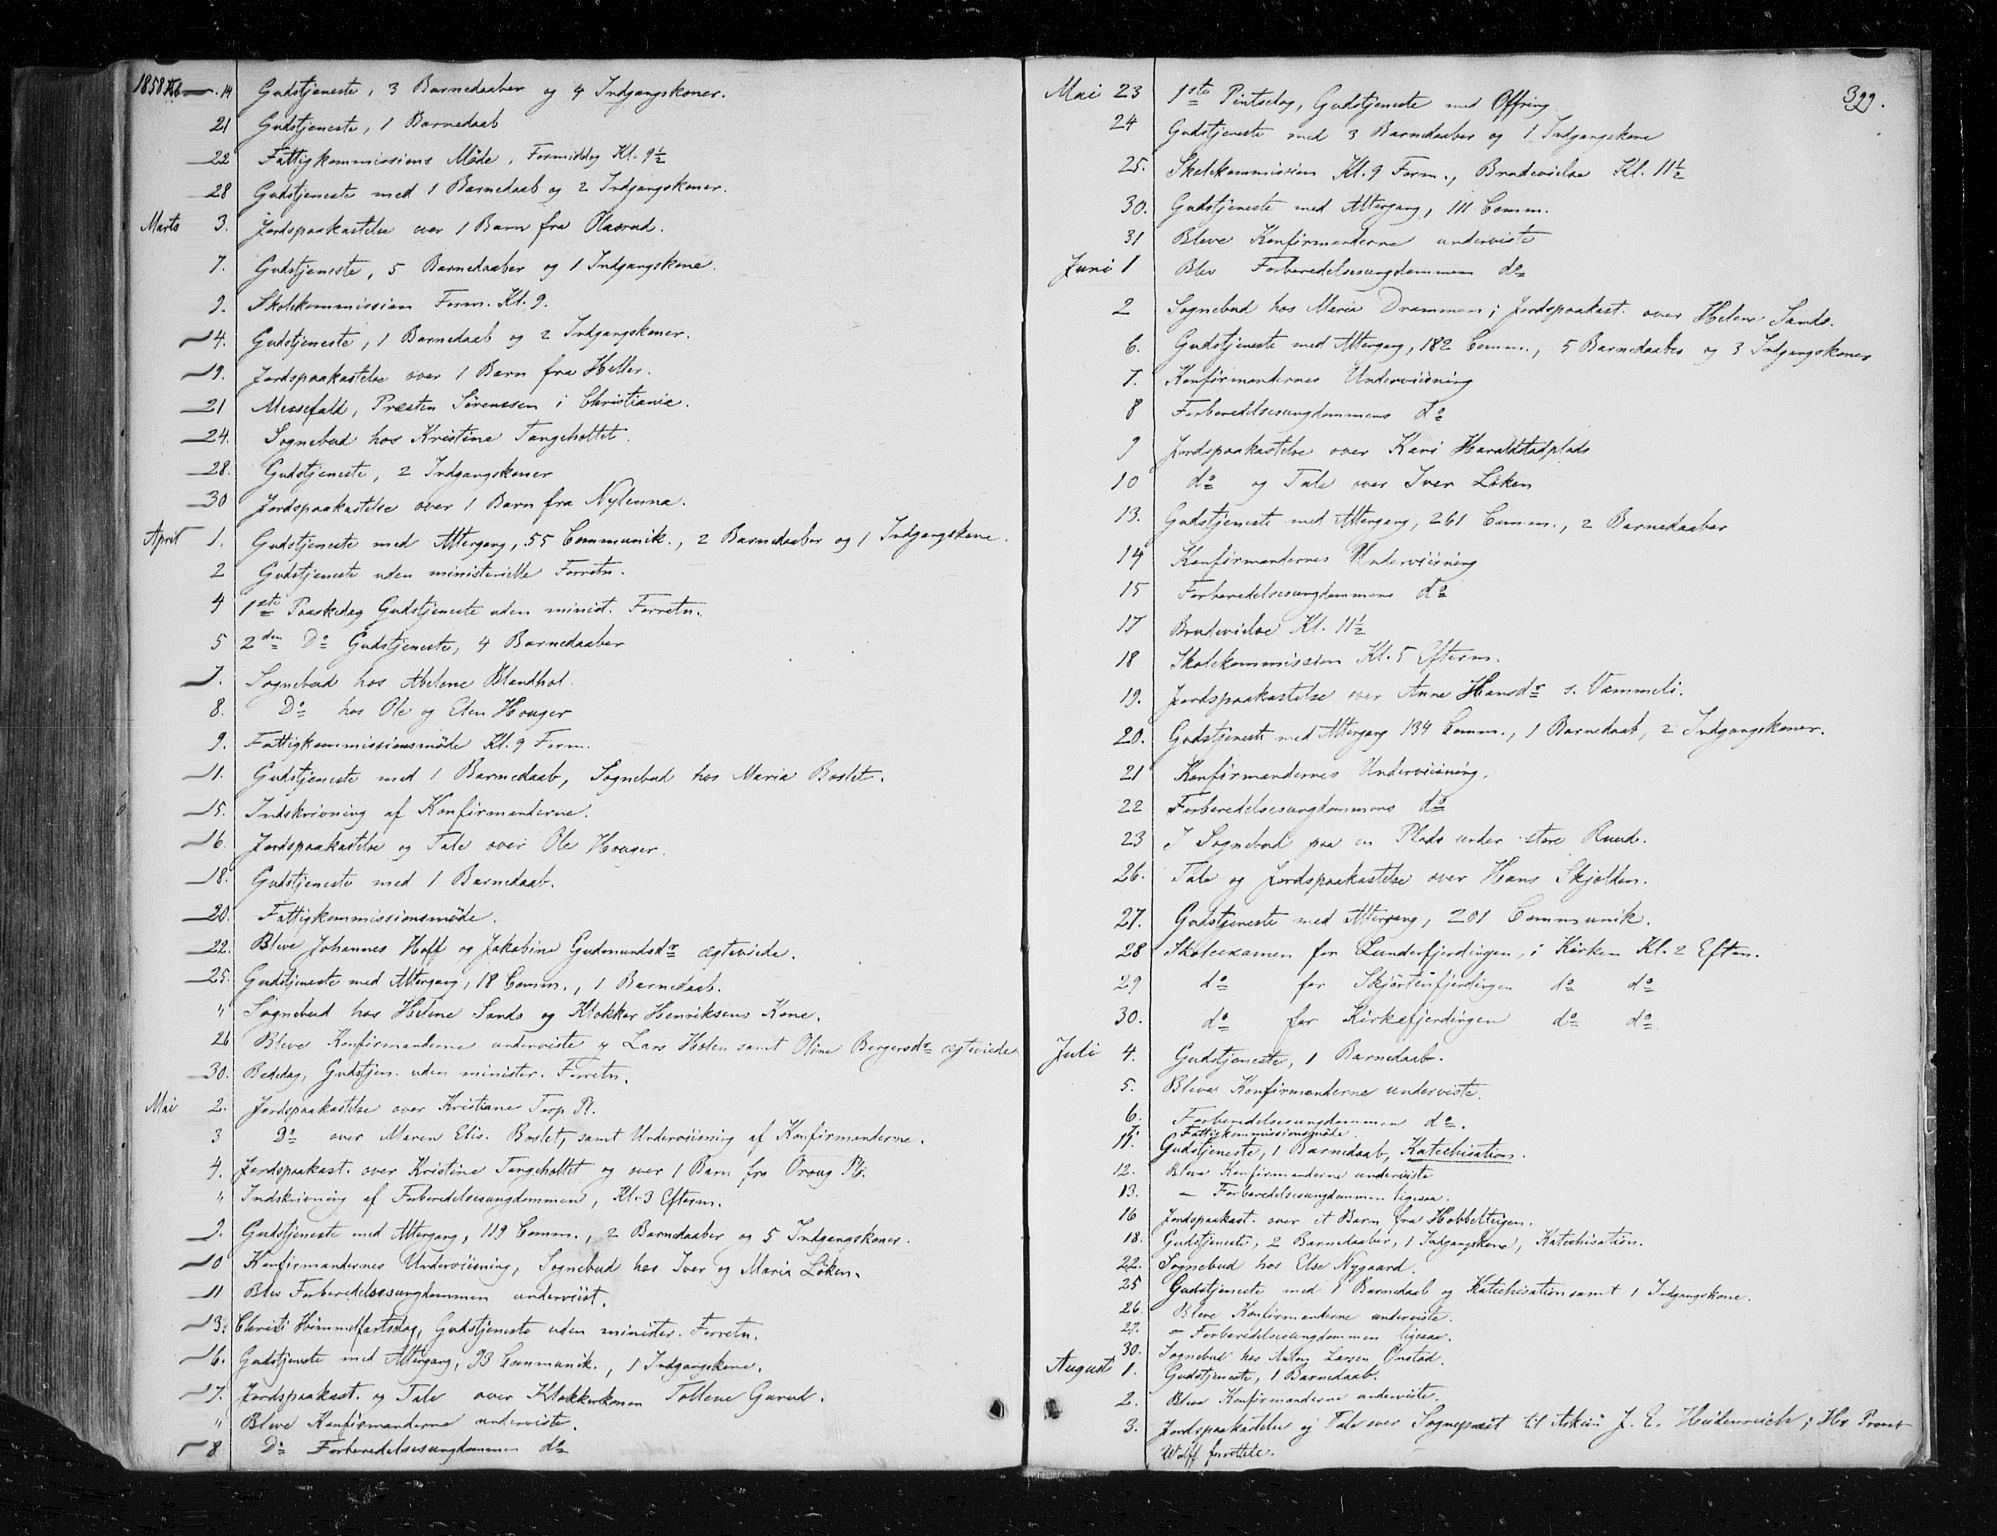 1858 Feb 14 Gudstjeneste, 3 Barnedaaber og 4 Indgangskoner.
21 Gudstjeneste, 1 Barnedaab
22 Fattigkommissions Møde, Formiddag Kl. 9½
28 Gudstjeneste med 1 Barnedaab og 2 Indgangskoner.
Marts 3. Jordspaakastelse over 1 Barn fra
7. Gudstjeneste, 5 Barnedaaber og 1 Indgangskone.
9. Skolekommission Form. Kl. 9.
14. Gudstjeneste, 1 Barnedaab og 2 Indgangskoner.
19. Jordspaakastelse over 1 Barn fra Heller.
21 Messefald, Præsten Sørenssen i Christiania.
24. Sognebud hos Kristine Tangeholtet.
28. Gudstjeneste, 2 Indgangskoner
30 Jordspaakastelse over 1 Barn fra Nylenna.
April 1. Gudstjeneste med Altergang, 55 Communik., 2 Barnedaaber og 1 Indgangskone.
2 Gudstjeneste uden ministerielle Forretn.
4 1ste Paaskedag Gudstjeneste uden minist. Forretn.
5 2den Do Gudstjeneste, 4 Barnedaaber
7. Sognebud hos Abelone Blandhol.
8. Do hos Ole og Elen Houger
9. Fattigkommissionsmøde Kl. 9 Form.
11. Gudstjeneste med 1 Barnedaab, Sognebud hos Maria Boslet.
15. Indskrivning af Konfirmanderne.
16. Jordspaakastelse og Tale over Ole Houger.
18. Gudstjeneste med 1 Barnedaab.
20. Fattigkommissionsmøde.
22. Bleve Johannes Hoff og Jakobine Gudmundsdr ægteviede.
25. Gudstjeneste med Altergang, 18 Comm., 1 Barnedaab.
" Sognebud hos Helene Sands og Klokker Henriksens Kone.
26 Bleve Konfirmanderne underviste og Lars Holen samt Oline Bergersdr ægteviede
30. Bededag, Gudstjen. uden minister. Forretn.
Mai 2. Jordspaakastelse over Kristiane Torp Pl.
3 Do over Maren Elis. Boslet, samt Underviisning af Konfirmanderne.
4. Jordspaakast. over Kristine Tangeholtet og over 1 Barn fra Oroug Pl.
" Indskrivning af Forberedelsesungdommen, Kl. 3 Efterm.
9. Gudstjeneste med Altergang, 119 Comm., 2 Barnedaaber og 5 Indgangskoner.
10 Konfirmandernes Underviisning, Sognebud hos Iver og Maria Løken.
11 Blev Forberedelsesungdommen underviist.
13. Christi Himmelfartsdag, Gudstjeneste uden minister. Forretn.
16. Gudstjeneste med Altergang, 93 Communik., 1 Indgangskone.
17. Jordspaakast. og Tale over Klokkerkonen Tollene Garud.
" Bleve Konfirmanderne underviste.
18 Do Forberedelsesungdommen do
329.
Mai 23 1ste Pintsedag, Gudstjeneste med Offring.
24 Gudstjeneste med 3 Barnedaaber og 1 Indgangskone
25. Skolekommission Kl. 9 Form., Brudevielse Kl. 11½
30. Gudstjeneste med Altergang, 111 Comm.
31 Bleve Konfirmanderne underviste
Juni 1 Blev Forberedelsesungdommen do
2 Sognebud hos Maria Drammen; Jordspaakast. over Helene Sands.
6. Gudstjeneste med Altergang, 182 Comm., 5 Barnedaaber og 3 Indgangskoner
7. Konfirmandernes Underviisning
8 Forberedelsesungdommens do
9 Jordspaakastelse over Kari Haraldstadplads
10 do og Tale over Iver Løken
13. Gudstjeneste med Altergang, 261 Comm., 2 Barnedaaber
14 Konfirmandernes Underviisning
15 Forberedelsesungdommens do
17 Brudevielse Kl. 11½
18 Skolekommission Kl. 5 Efterm.
19. Jordspaakastelse over Anne Hansdr s. Vammeli.
20. Gudstjeneste med Altergang 134 Comm., 1 Barnedaab, 2 Indgangskoner.
21 Konfirmandernes Underviisning.
22 Forberedelsesungdommens do
23 I Sognebud paa en Plads under store Ruud.
26. Tale og Jordspaakastelse over Hans Skjolden.
27. Gudstjeneste med Altergang, 201 Communik.
28 Skoleexamen for Lunderfjerdingen, i Kirken Kl. 2 Efterm.
29 do for Skjørtenfjerdingen do do
30. do for Kirkefjerdingen do do
Juli 4. Gudstjeneste, 1 Barnedaab.
5. Bleve Konfirmanderne underviste.
6. Forberedelsesungdommen do.
7. Fattigkommissionsmøde.
11. Gudstjeneste, 1 Barnedaab, Katechisation.
12. Bleve Konfirmanderne underviste
13. – Forberedelsesungdommen ligesaa.
16 Jordspaakast. over et Barn fra Hobbelteigen.
18. Gudstjeneste, 2 Barnedaaber, 1 Indgangskone, Katechisation.
22. Sognebud hos Else Nygaard.
25 Gudstjeneste med 1 Barnedaab og Katechisation samt 1 Indgangskone.
26. Bleve Konfirmanderne underviste.
27. – Forberedelsesungdommen ligesaa.
30. Sognebud hos Anton Larsen Onstad.
August 1. Gudstjeneste, 1 Barnedaab.
2. Bleve Konfirmanderne underviste.
3. Jordspaakastelse og Tale over Sognepræst til Askim J. E. Heidenreich; Hr Provst
Wolff forrettede.